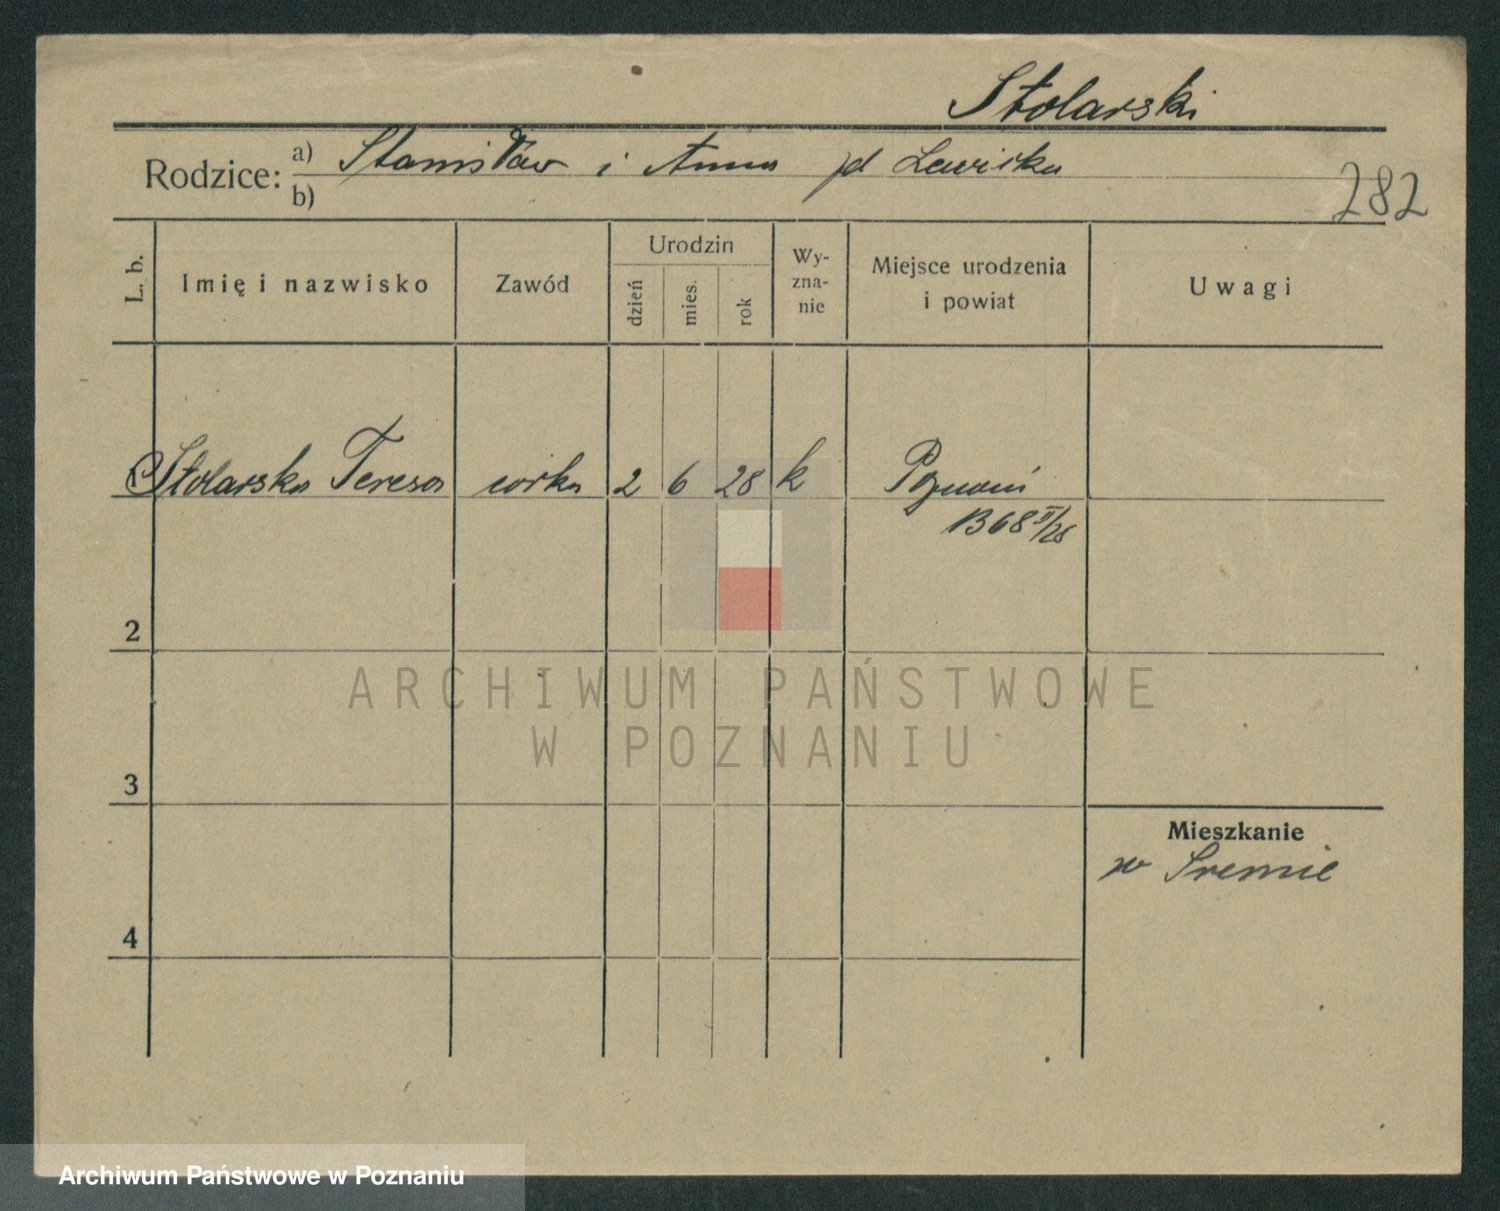 Stolarski
Rodzice: a) Stanisław i Anna
b)
282
L. b.
Imię i nazwisko
Zawód
Urodzin
dzień
mies.
rok
Wy-
zna-
nie
Miejsce urodzenia
i powiat
Uwagi
Stolarska Teresa córka 2 6 28 k Poznań
1368 II/28
2
ARCHIWUM PAŃSTWOWE
W POZNANIU
3
Mieszkanie
w Śremie
4
Archiwum Państwowe w Poznaniu